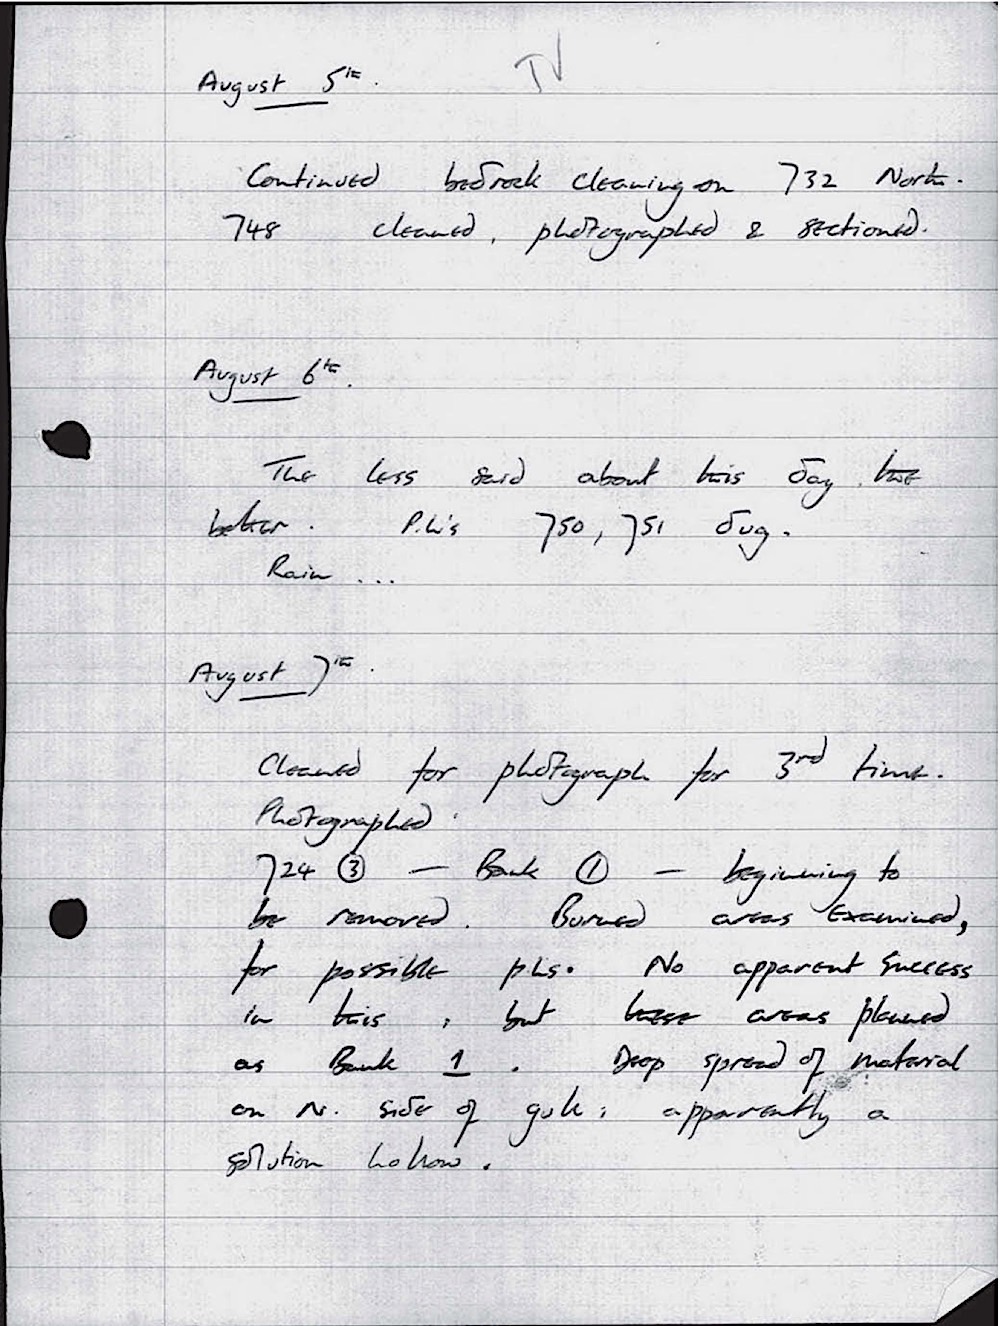 TV
August 5th.
Continued bedrock cleaning on 732 North.
748 cleaned, photographed & sectioned.
August 6th.
The less said about this day the
better. P.h's 750, 751 dug.
Rain ...
August 7th.
Cleaned for photograph for 3rd time.
Photographed.
724 ③ — Bank ① — beginning to
be removed. Burned areas examined,
for possible phs. No apparent success
in this, but these areas planned
as Bank 1. Deep spread of material
on N. side of gully; apparently a
solution hollow.